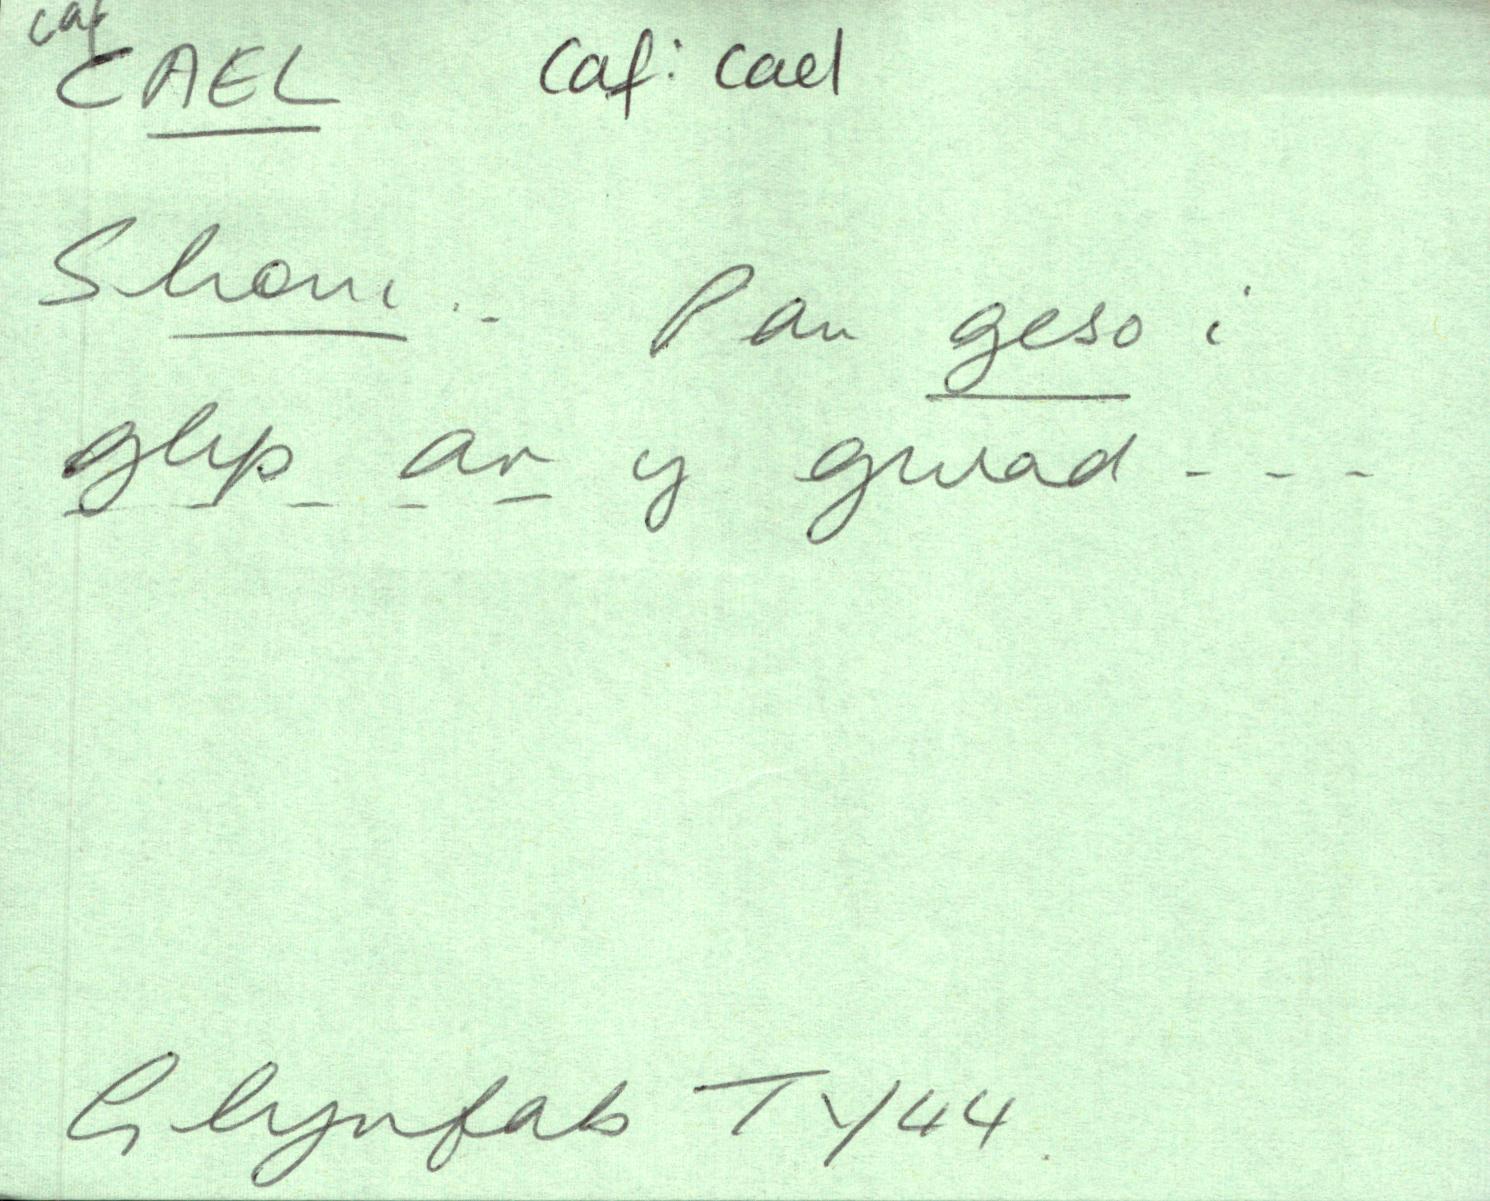 caf
CAEL caf: cael
Shoni .. Pan geso i
glip ar y gwad - - -
Glynfab TY44